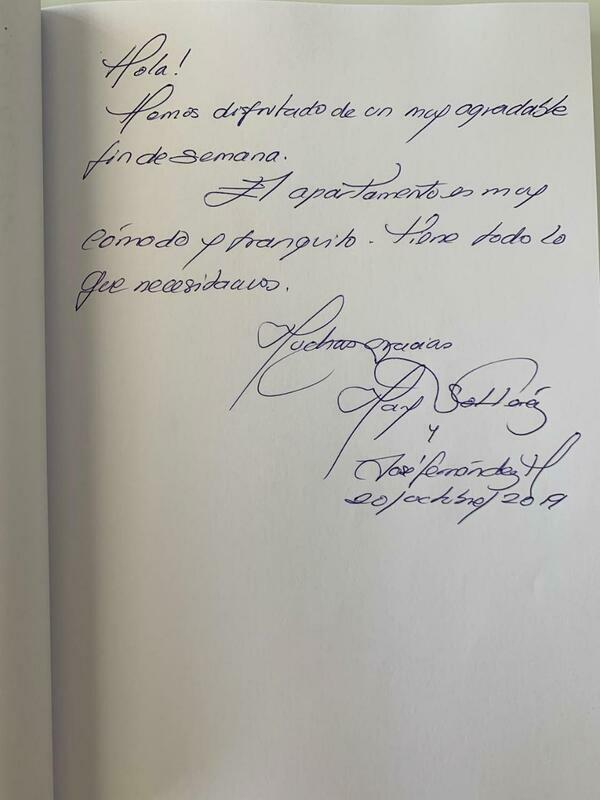 Hola!
Hemos disfrutado de un muy agradable
fin de semana.
El apartamento es muy
cómodo y tranquilo. Tiene todo lo
que necesitamos.
Muchas gracias
Mary
y
José Fernández H
20/octubre/2019